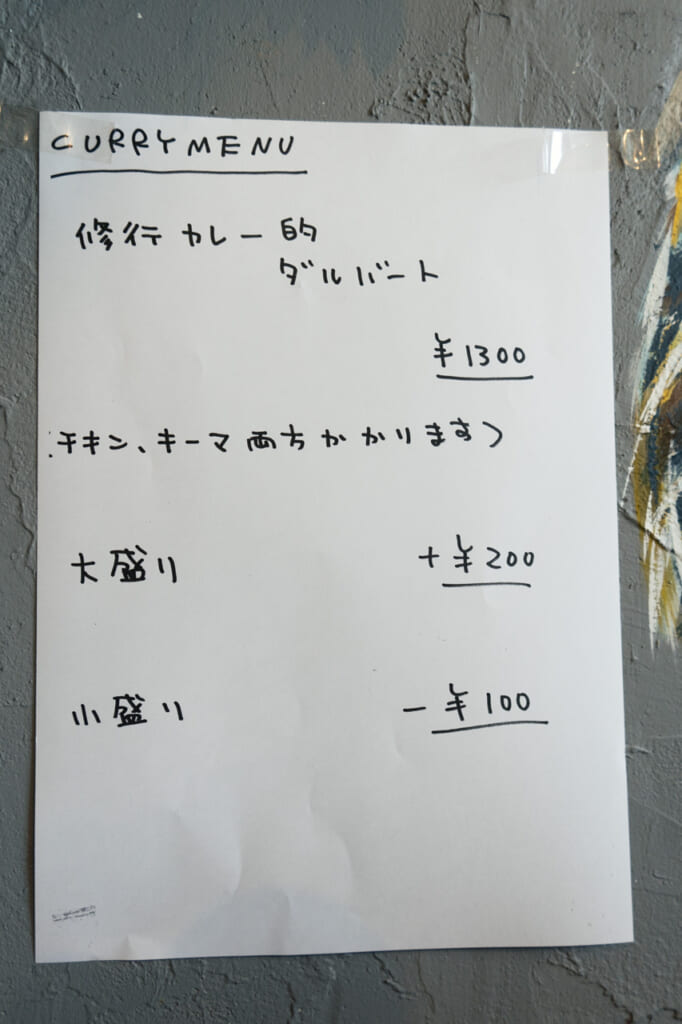 CURRY MENU
修行カレー的
ダルバート
¥1300
チキン、キーマ両方かかります)
大盛り +¥200
小盛り -¥100